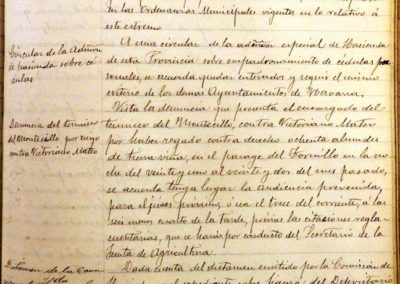 en las Ordenanzas Municipales vigentes en lo relativo á
este estremo
Circular de la Admon
de hacienda sobre cé
dulas
A una circular de la admon especial de Hacienda
de esta Provincia sobre empadronamiento de cedulas per
sonales, se acuerda quedar enterado y seguir el mismo
criterio de los demas Ayuntamientos de Navarra.
Denuncia del termino
del Montecillo por riego
contra Victoriano Mateo
Vista la denuncia que presenta el encargado del
termino del Montecillo, contra Victoriano Mateo
por haber regado contra derecho ochenta almudes
de tierra viña, en el parage del Fornillo en la no
che del veinte y uno al veinte y dos del mes pasado,
se acuerda tenga lugar la Audiencia prevenida,
para el jueves proximo, ó sea el trece del corriente, á las
seis menos cuarto de la tarde, previas las citaciones regla-
mentarias, que se harán por conducto del Secretario de la
Junta de Agricultura.
Dada cuenta del dictamen emitido por la Comision de